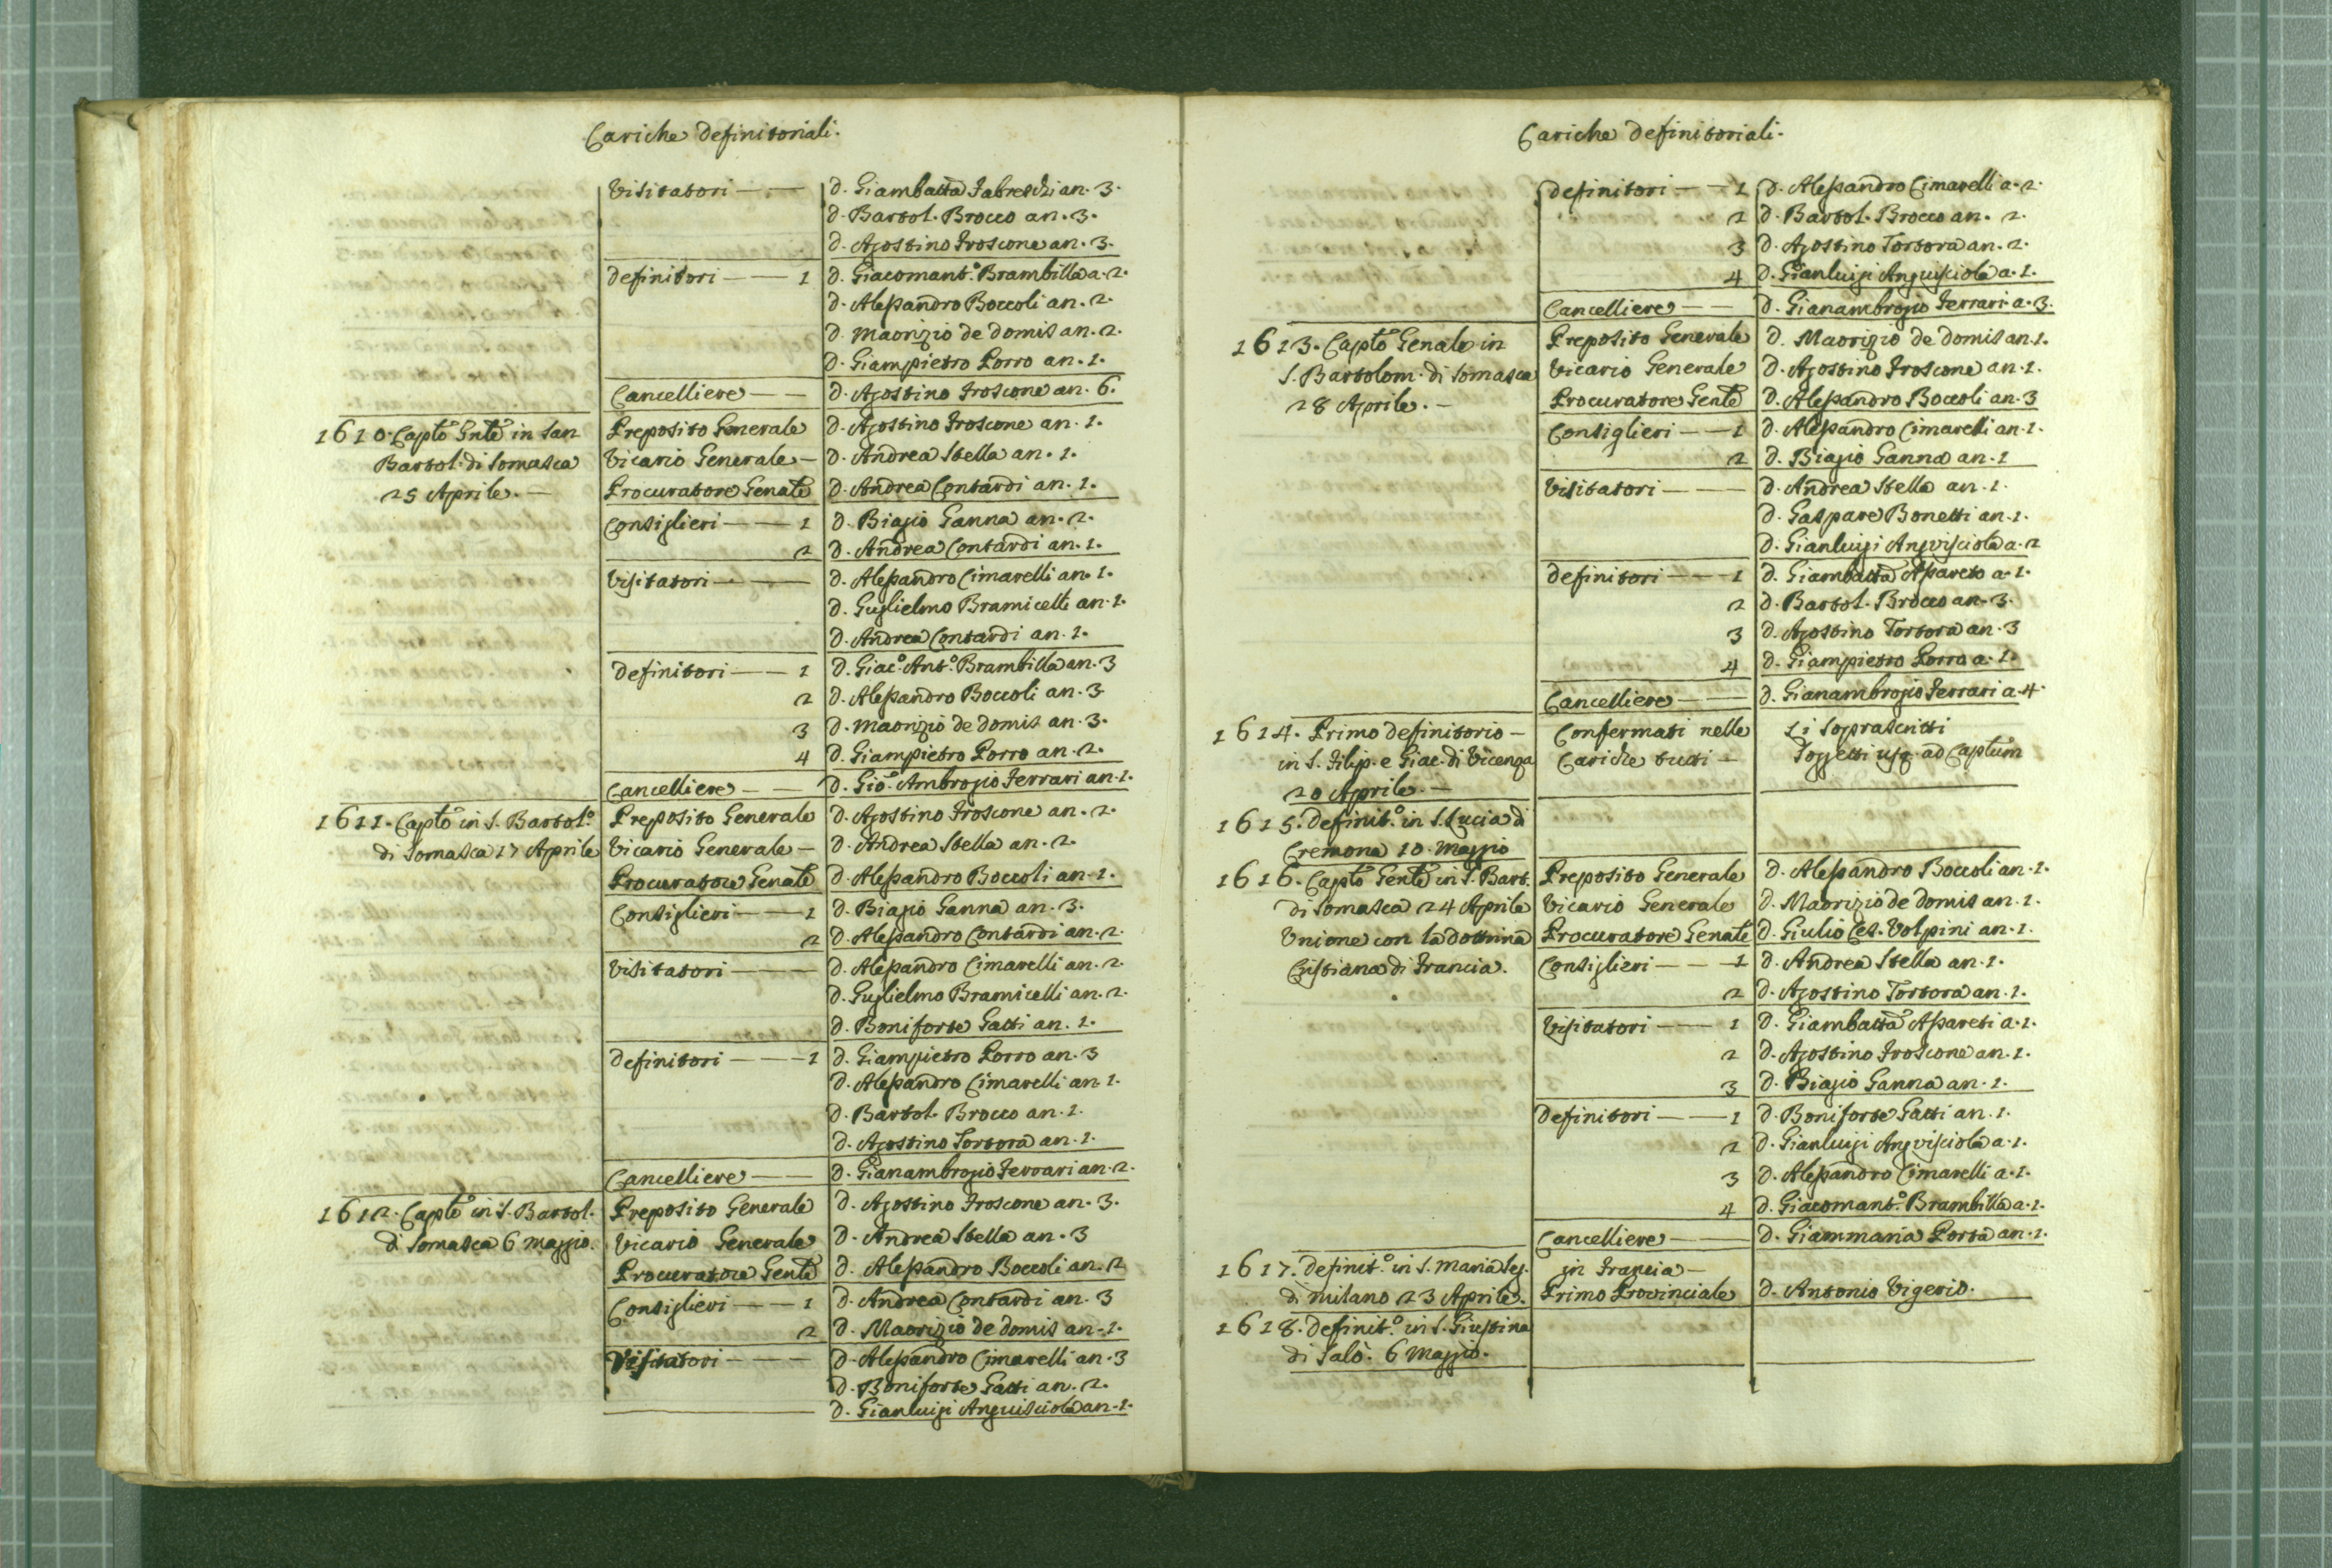 Cariche Definitoriali.
Visitatori — — D. Giambatta Fabreschi an. 3.
D. Bartol. Brocco an. 3.
D. Agostino Froscone an. 3.
Definitori — — 1 D. Giacomant.o Brambilla a. 2.
D. Alessandro Boccoli an. 2.
D. Maorizio de Domis an. 2.
D. Giampietro Porro an. 1.
Cancelliere — — D. Agostino Froscone an. 6.
1610. Capto Gnle in San Preposito Generale D. Agostino Froscone an. 1.
Bartol. di Somasca Vicario Generale — D. Andrea Stella an. 1.
25 Aprile. — Procuratore Genale D. Andrea Contardi an. 1.
Consiglieri — — 1 D. Biagio Ganna an. 2.
2 D. Andrea Contardi an. 1.
Visitatori — — D. Alessandro Cimarelli an. 1.
D. Guglielmo Bramicelli an. 1.
D. Andrea Contardi an. 1.
Definitori — — 1 D. Giac.o Ant.o Brambilla an. 3
2 D. Alessandro Boccoli an. 3.
3 D. Maorizio de Domis an. 3.
4 D. Giampietro Porro an. 2.
Cancelliere — — D. Gio. Ambrogio Ferrari an. 1.
1611. Capto in S. Bartol.o Preposito Generale D. Agostino Froscone an. 2.
di Somasca 17 Aprile Vicario Generale — D. Andrea Stella an. 2.
Procuratore Genale D. Alessandro Boccoli an. 1.
Consiglieri — — 1 D. Biagio Ganna an. 3.
2 D. Alessandro Contardi an. 2.
Visitatori — — D. Alessandro Cimarelli an. 2.
D. Guglielmo Bramicelli an. 2.
D. Boniforte Gatti an. 1.
Definitori — — 1 D. Giampietro Porro an. 3
D. Alessandro Cimarelli an. 1.
D. Bartol. Brocco an. 1.
D. Agostino Tortora an. 1.
Cancelliere — — D. Gianambrogio Ferrari an. 2.
1612. Capto in S. Bartol. Preposito Generale D. Agostino Froscone an. 3.
di Somasca 6 Maggio. Vicario Generale D. Andrea Stella an. 3
Procuratore Genle D. Alessandro Boccoli an. 2
Consiglieri — — 1 D. Andrea Contardi an. 3
2 D. Maorizio de Domis an. 1.
Visitatori — — D. Alessandro Cimarelli an. 3
D. Boniforte Gatti an. 2.
D. Gianluigi Anguisciola an. 1.
Cariche Definitoriali.
Definitori — — 1 D. Alessandro Cimarelli a. 2.
2 D. Bartol. Brocco an. 2.
3 D. Agostino Tortora an. 2.
4 D. Gianluigi Anguisciola a. 1.
Cancelliere — — D. Gianambrogio Ferrari a. 3.
1613. Capto Genale in Preposito Generale D. Maorizio de Domis an. 1.
S. Bartolom. di Somasca Vicario Generale D. Agostino Froscone an. 1.
28 Aprile. — Procuratore Genle D. Alessandro Boccoli an. 3
Consiglieri — — 1 D. Alessandro Cimarelli an. 1.
2 D. Biagio Ganna an. 1
Visitatori — — D. Andrea Stella an. 1.
D. Gaspare Bonetti an. 1.
D. Gianluigi Angvisciola a. 2
Definitori — — 1 D. Giambatta Assareto a. 1.
2 D. Bartol. Brocco an. 3.
3 D. Agostino Tortora an. 3
4 D. Giampietro Porro a. 1.
Cancelliere — — D. Gianambrogio Ferrari a. 4.
1614. Primo Definitorio — Confermati nelle Li soprascritti
in S. Filip. e Giac. di Vicenza Cariche tutti — Soggetti usq. ad Captum
20 Aprile. —
1615. Definit.o in S. Lucia di
Cremona 10. Maggio
1616. Capto Genle in S. Bart. Preposito Generale D. Alessandro Boccoli an. 1.
di Somasca 24 Aprile Vicario Generale D. Maorizio de Domis an. 1.
Unione con la dottrina Procuratore Genale D. Giulio Ces. Volpini an. 1.
Cristiana di Francia. Consiglieri — — 1 D. Andrea Stella an. 1.
2 D. Agostino Tortora an. 1.
Visitatori — — 1 D. Giambatta Assareti a. 1.
2 D. Agostino Froscone an. 1.
3 D. Biagio Ganna an. 1.
Definitori — — 1 D. Boniforte Gatti an. 1.
2 D. Gianluigi Angvisciola a. 1.
3 D. Alessandro Cimarelli a. 1.
4 D. Giacomant.o Brambilla a. 1.
Cancelliere — — D. Giammaria Porta an. 1.
1617. Definit.o in S. Maria Seg. in Francia —
di Milano 23 Aprile. Primo Provinciale D. Antonio Vigerio.
1618. Definit.o in S. Giustina
di Salò. 6 Maggio.